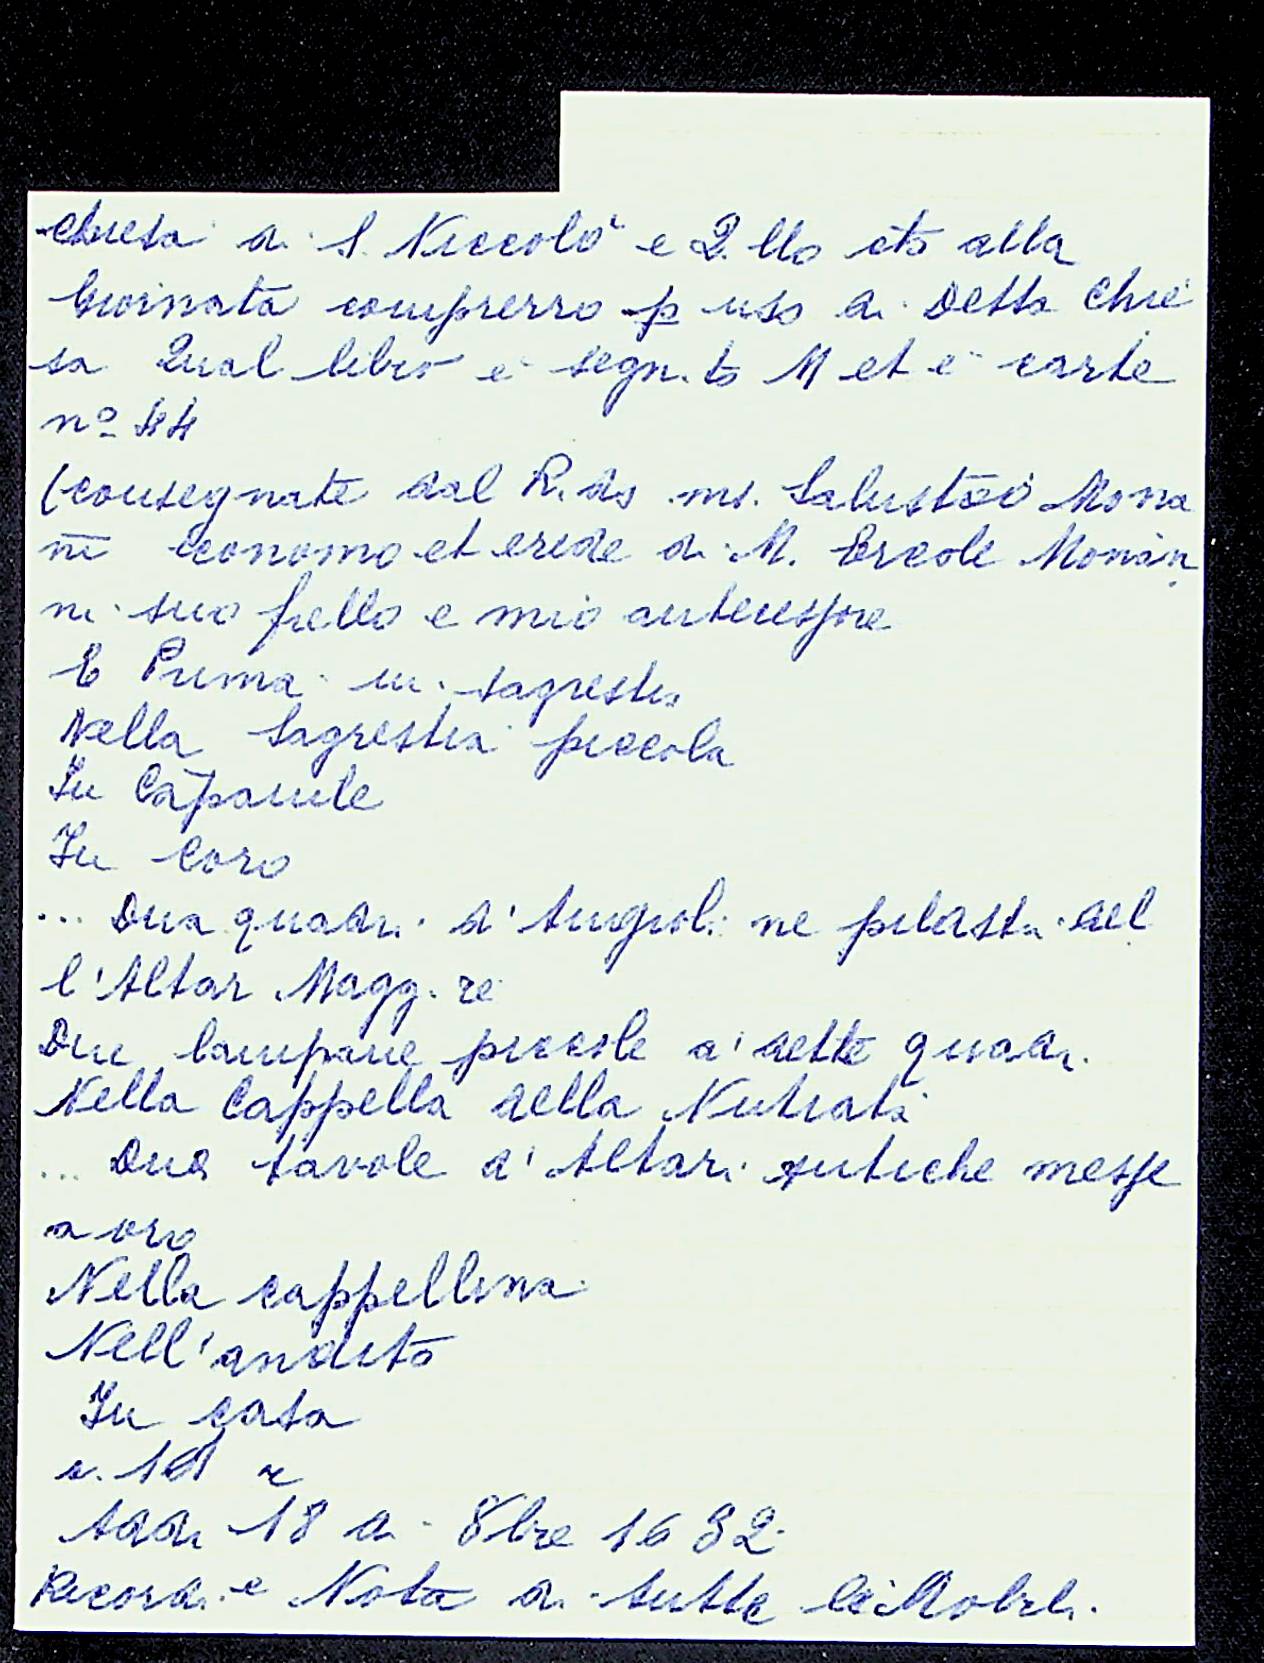 chiesa di S. Niccolò e q.llo che alla
Giornata comprerrò p uso di detta Chie
sa Qual libro è segn.to M et è carte
nº 44
(consegnate dal R.do ms. Salustio Mona
ni economo et erede di M. Ercole Monan
ni suo frello e mio antecessore
E Prima in sagrestia
Nella Sagrestia piccola
In Campanile
In Coro
... Dua quadri d'Angioli ne pilastri del
l'Altar Magg.re
Due lampane piccole a' detti quadri
Nella Cappella della Natività
... Dua tavole d'Altari antiche messe
a oro
Nella cappellina
Nell'andito
In casa
Addi 18 di 8bre 1632
Ricordi e Nota di tutte le Mobili